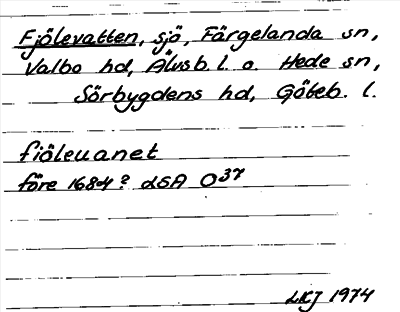 Fjölevatten, sjö, Färgelanda sn,
Valbo hd, Älvsb. l. o. Hede sn,
Sörbygdens hd, Göteb. l.
fiöleuanet
före 1684? LSA O37
LKJ 1974